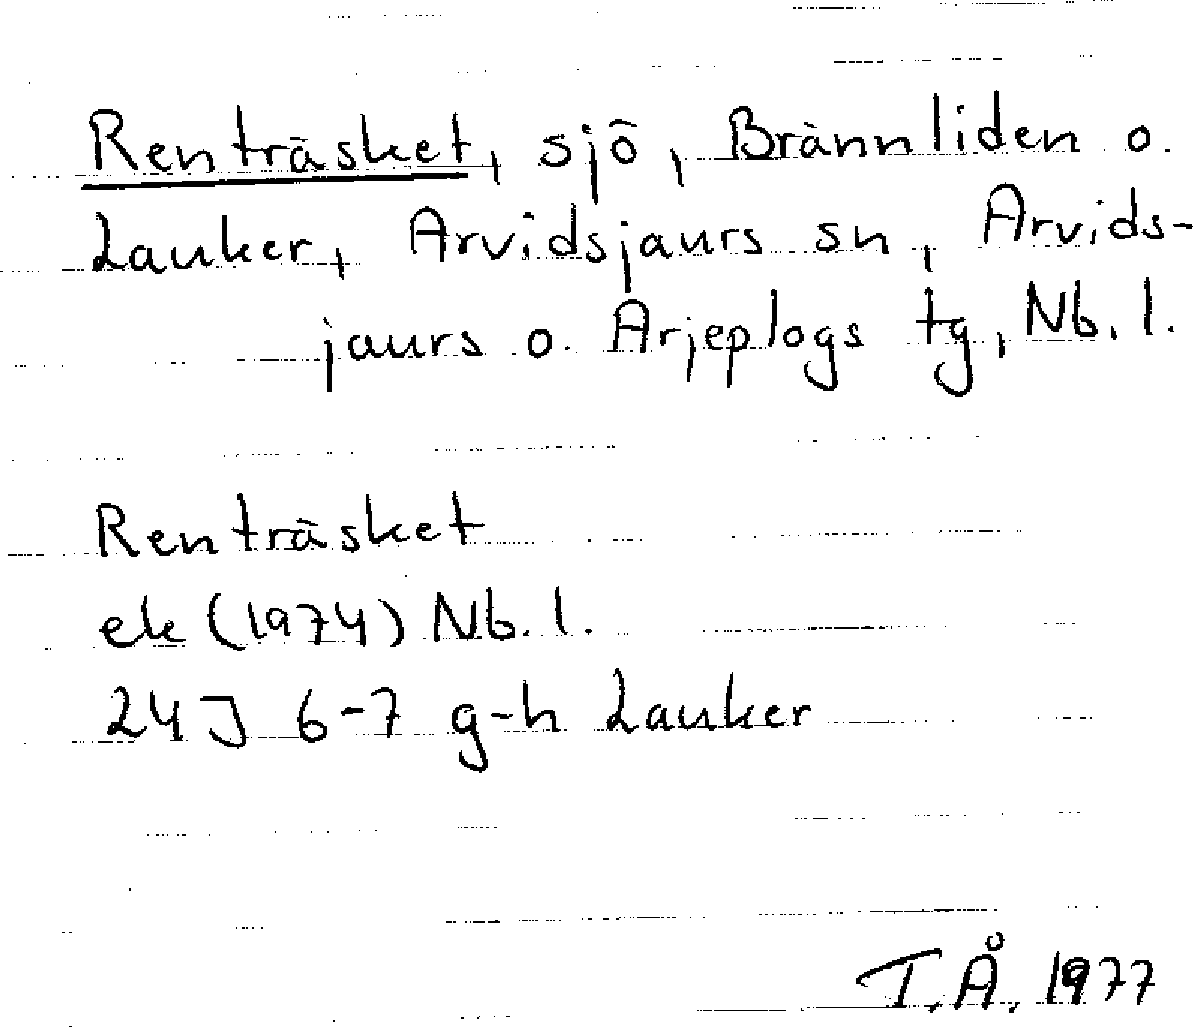 Renträsket, sjö, Brännliden o.
Lauker, Arvidsjaurs sn, Arvids-
jaurs o. Arjeplogs tg, Nb. l.
Renträsket
ek (1974) Nb. l.
24J 6-7 g-h Lauker
T.Å. 1977